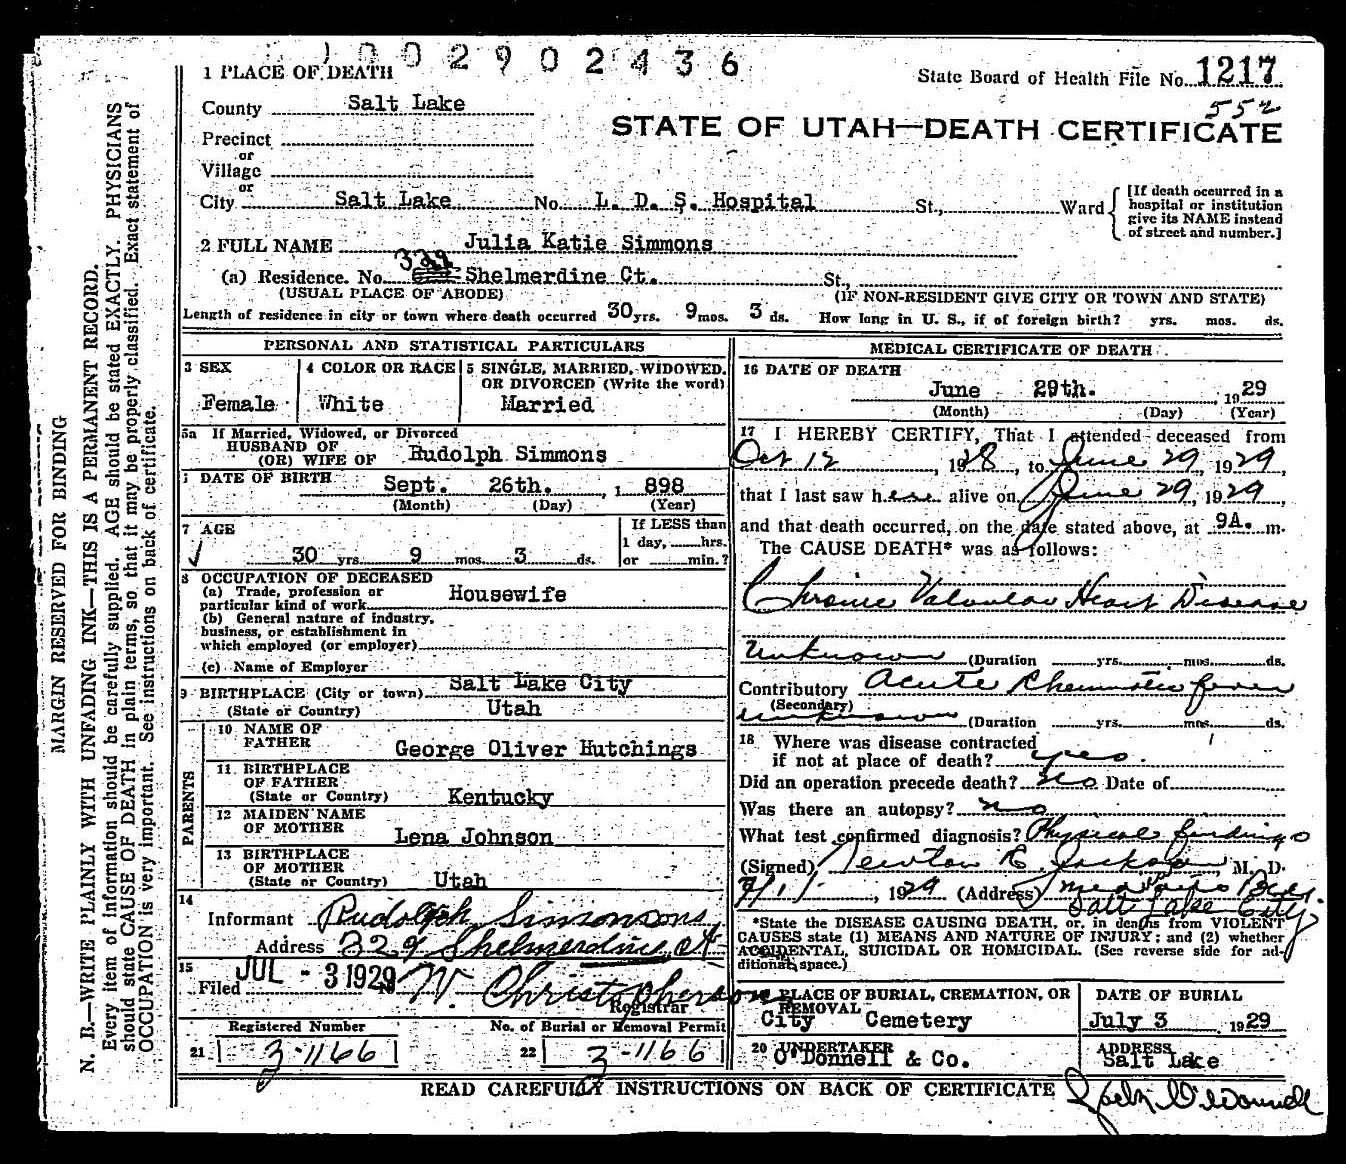 1002902436
1 PLACE OF DEATH
State Board of Health File No. 1217
County Salt Lake
552
STATE OF UTAH—DEATH CERTIFICATE
Precinct
or
Village
or
City Salt Lake No. L. D. S. Hospital St., Ward
[If death occurred in a
hospital or institution
give its NAME instead
of street and number.]
2 FULL NAME Julia Katie Simmons
(a) Residence. No. 329 Shelmerdine Ct. St.,
(USUAL PLACE OF ABODE) (IF NON-RESIDENT GIVE CITY OR TOWN AND STATE)
Length of residence in city or town where death occurred 30 yrs. 9 mos. 3 ds. How long in U. S., if of foreign birth? yrs. mos. ds.
PERSONAL AND STATISTICAL PARTICULARS
3 SEX
Female
4 COLOR OR RACE
White
5 SINGLE, MARRIED, WIDOWED,
OR DIVORCED (Write the word)
Married
5a If Married, Widowed, or Divorced
HUSBAND OF
(OR) WIFE OF Rudolph Simmons
DATE OF BIRTH
Sept. 26th. , 1 898
(Month) (Day) (Year)
7 AGE
30 yrs. 9 mos. 3 ds.
If LESS than
1 day, hrs.
or min.?
8 OCCUPATION OF DECEASED
(a) Trade, profession or
particular kind of work Housewife
(b) General nature of industry,
business, or establishment in
which employed (or employer)
(c) Name of Employer
9 BIRTHPLACE (City or town) Salt Lake City
(State or Country) Utah
PARENTS
10 NAME OF
FATHER George Oliver Hutchings
11 BIRTHPLACE
OF FATHER
(State or Country) Kentucky
12 MAIDEN NAME
OF MOTHER Lena Johnson
13 BIRTHPLACE
OF MOTHER
(State or Country) Utah
14
Informant Rudolph Simmons
Address 329 Shelmerdine Ct
15
Filed JUL - 3 1929 W. Christopherson
Registrar
Registered Number
21 3-1166
No. of Burial or Removal Permit
22 3-1166
MEDICAL CERTIFICATE OF DEATH
16 DATE OF DEATH
June 29th. , 19 29
(Month) (Day) (Year)
17 I HEREBY CERTIFY, That I attended deceased from
Oct 12 , 1928 , to June 29, 1929,
that I last saw her alive on June 29, 1929,
and that death occurred, on the date stated above, at 9A. m.
The CAUSE DEATH* was as follows:
Chronic Valvular Heart Disease
unknown (Duration yrs. mos. ds.
Contributory Acute Rheumatic fever
(Secondary)
unknown (Duration yrs. mos. ds.
18 Where was disease contracted
if not at place of death? yes.
Did an operation precede death? no Date of
Was there an autopsy? no
What test confirmed diagnosis? Physical findings
(Signed) Newton E Jackson, M. D.
7/1/ , 1929 (Address)
Salt Lake City
*State the DISEASE CAUSING DEATH, or, in deaths from VIOLENT
CAUSES state (1) MEANS AND NATURE OF INJURY; and (2) whether
ACCIDENTAL, SUICIDAL OR HOMICIDAL. (See reverse side for ad-
ditional space.)
PLACE OF BURIAL, CREMATION, OR
REMOVAL
City Cemetery
DATE OF BURIAL
July 3 , 1929
20 UNDERTAKER
O'Donnell & Co.
ADDRESS
Salt Lake
READ CAREFULLY INSTRUCTIONS ON BACK OF CERTIFICATE
O'Donnell
MARGIN RESERVED FOR BINDING
N. B.—WRITE PLAINLY WITH UNFADING INK—THIS IS A PERMANENT RECORD.
Every item of information should be carefully supplied. AGE should be stated EXACTLY. PHYSICIANS
should state CAUSE OF DEATH in plain terms, so that it may be properly classified. Exact statement of
OCCUPATION is very important. See instructions on back of certificate.